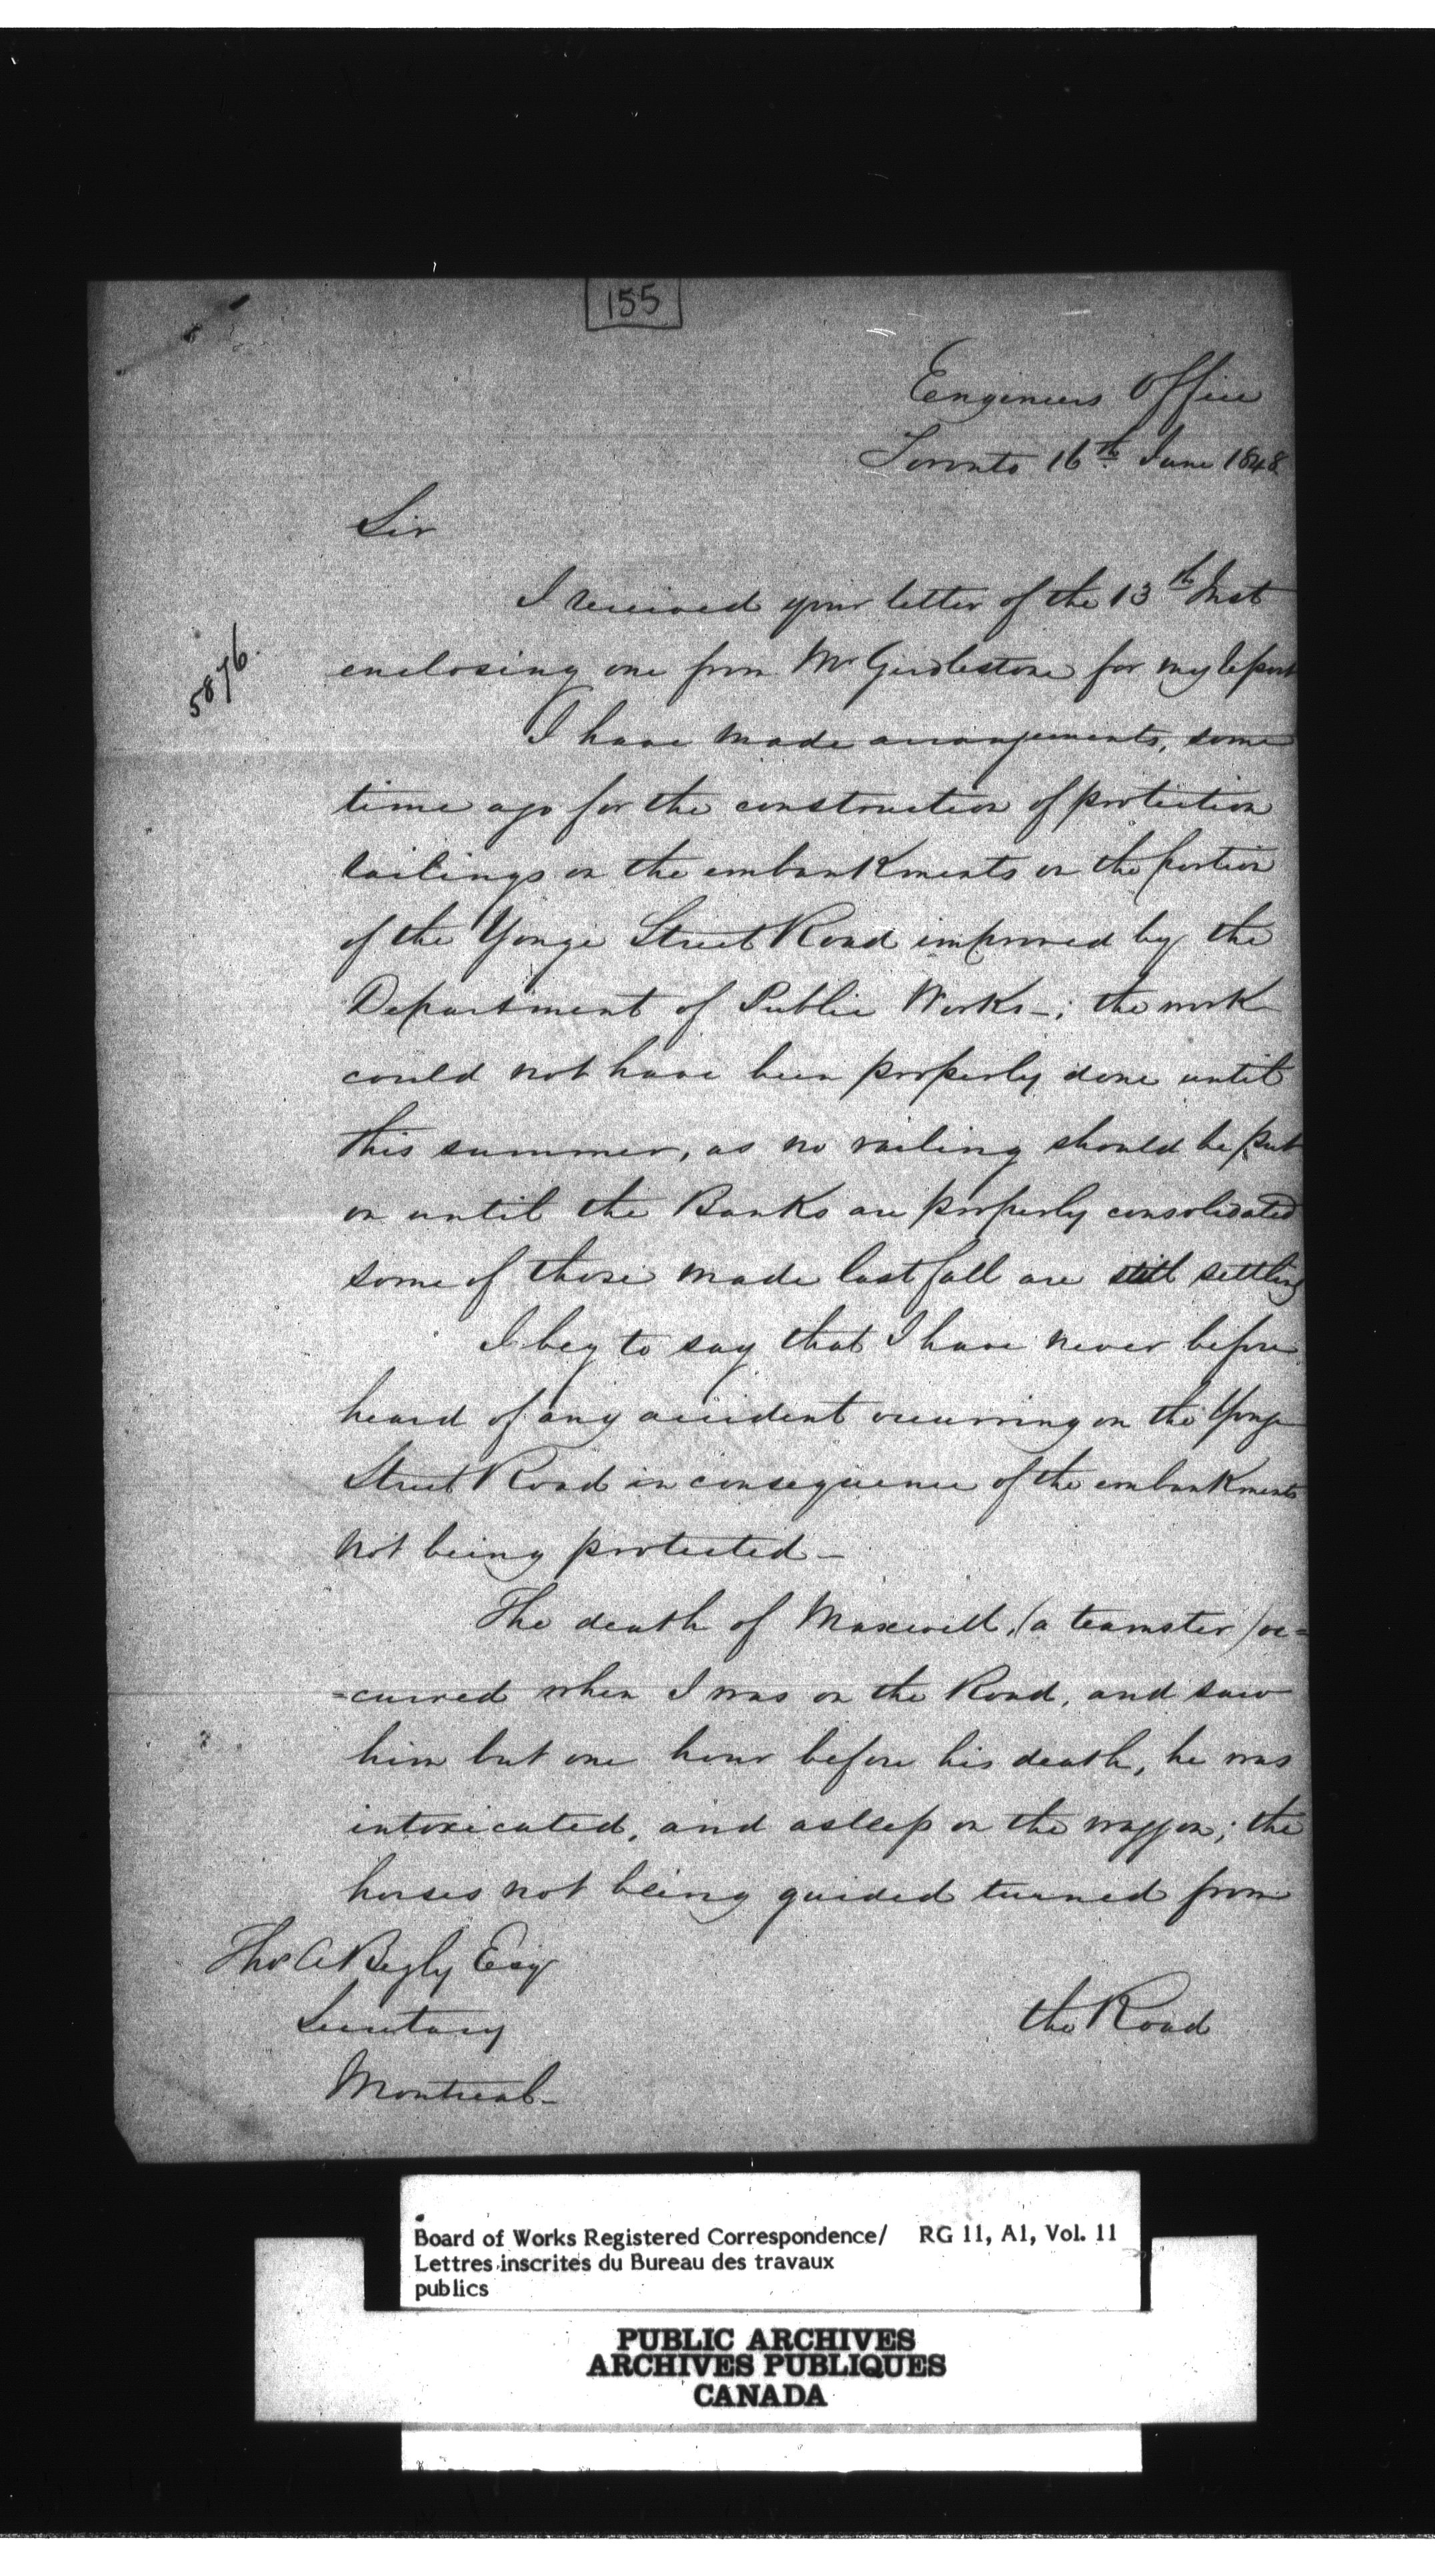 155
Engineers Office
Toronto 16th June 1848
Sir
I received your letter of the 13th Inst
enclosing one from Mr Girdlestone for my report
5876.
I have made arrangements, some
time ago for the construction of protection
railings on the embankments on the portion
of the Yonge Street Road improved by the
Department of Public Works -; the work
could not have been properly done until
this summer, as no railing should be put
on until the Banks are properly consolidated
some of those made last fall are still settling
I beg to say that I have never before
heard of any accident occurring on the Yonge
Street Road in consequence of the embankments
not being protected -
The death of Maxwell, (a teamster) oc=
=curred when I was on the Road, and saw
him but one hour before his death, he was
intoxicated, and asleep on the waggon; the
horses not being guided turned from
Thos A Begly Esqr
Secretary
the Road
Montreal -
Board of Works Registered Correspondence/ RG 11, A1, Vol. 11
Lettres inscrites du Bureau des travaux
publics
PUBLIC ARCHIVES
ARCHIVES PUBLIQUES
CANADA